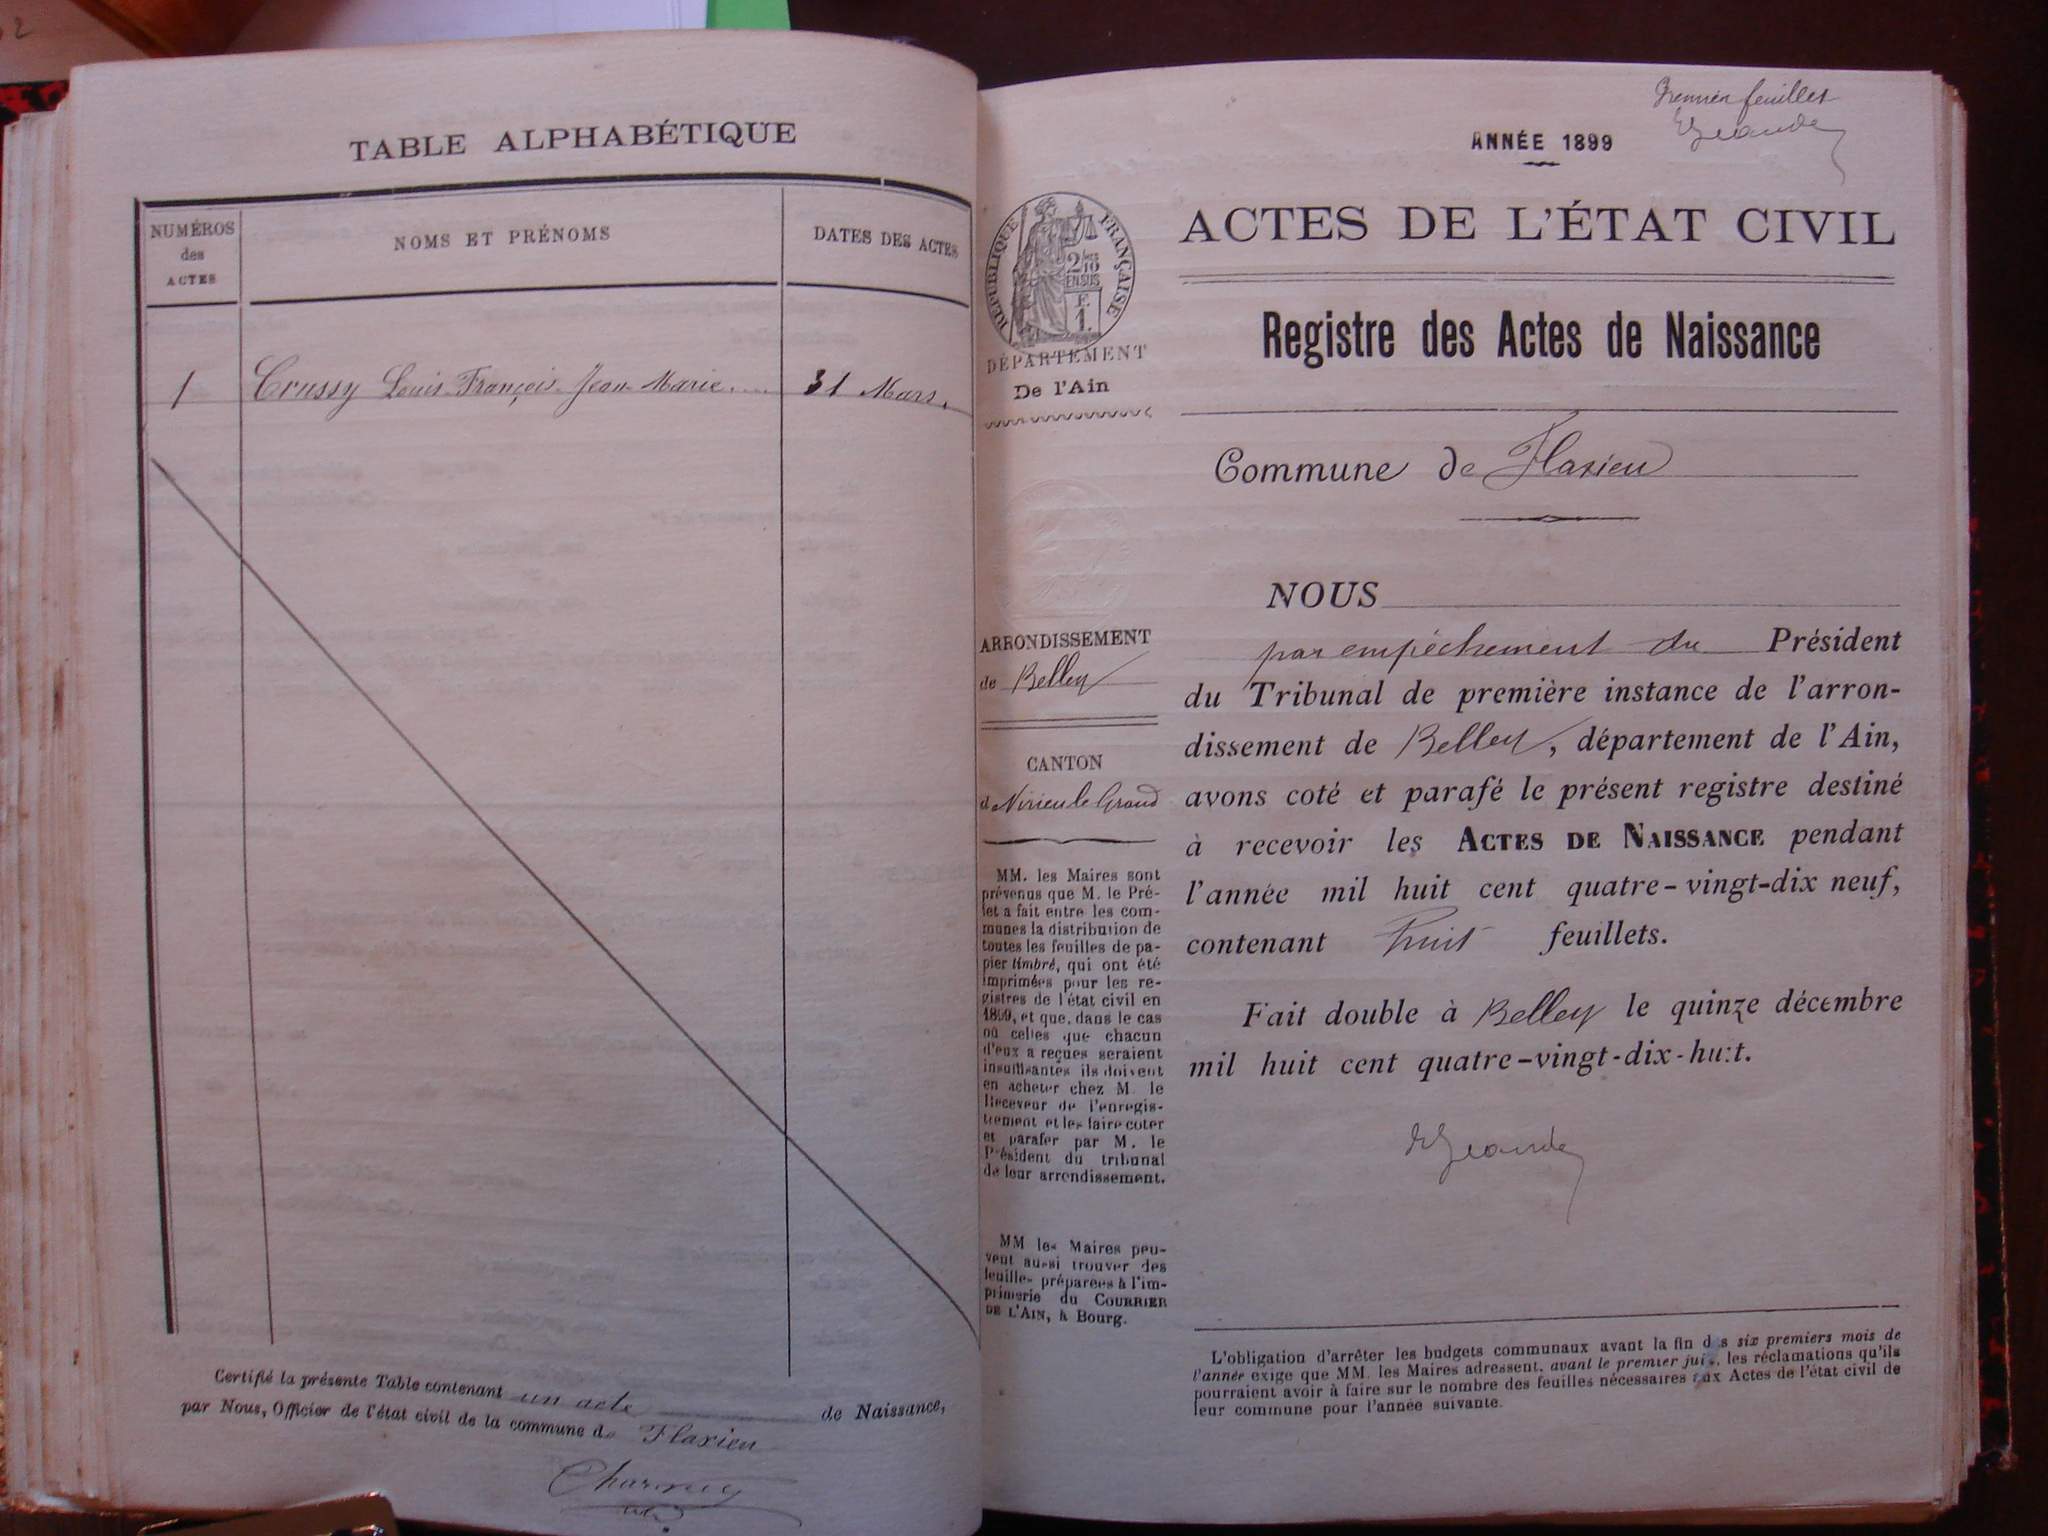 TABLE ALPHABÉTIQUE
NUMÉROS des ACTES
NOMS ET PRÉNOMS
DATES DES ACTES
1 Crussy Louis François Jean Marie 31 Mars.
Certifié la présente Table contenant un acte de Naissance,
par Nous, Officier de l'état civil de la commune de Flaxieu
Premier feuillet
ANNÉE 1899
ACTES DE L'ÉTAT CIVIL
Registre des Actes de Naissance
RÉPUBLIQUE FRANÇAISE
2/10
EN SUS
F.
1.
DÉPARTEMENT
De l'Ain
Commune de Flaxieu
ARRONDISSEMENT
de Belley
CANTON
de Virieu le Grand
MM. les Maires sont
prévenus que M. le Pré-
fet a fait entre les com-
munes la distribution de
toutes les feuilles de pa-
pier timbré, qui ont été
imprimées pour les re-
gistres de l'état civil en
1899, et que, dans le cas
où celles que chacun
d'eux a reçues seraient
insuffisantes ils doivent
en acheter chez M. le
Receveur de l'enregis-
trement et les faire coter
et parafer par M. le
Président du tribunal
de leur arrondissement.
MM les Maires peu-
vent aussi trouver des
feuilles préparées à l'im-
primerie du COURRIER
DE L'AIN, à Bourg.
NOUS
par empêchement du Président
du Tribunal de première instance de l'arron-
dissement de Belley, département de l'Ain,
avons coté et parafé le présent registre destiné
à recevoir les ACTES DE NAISSANCE pendant
l'année mil huit cent quatre-vingt-dix neuf,
contenant huit feuillets.
Fait double à Belley le quinze décembre
mil huit cent quatre-vingt-dix-huit.
L'obligation d'arrêter les budgets communaux avant la fin des six premiers mois de
l'année exige que MM. les Maires adressent, avant le premier juin, les réclamations qu'ils
pourraient avoir à faire sur le nombre des feuilles nécessaires aux Actes de l'état civil de
leur commune pour l'année suivante.